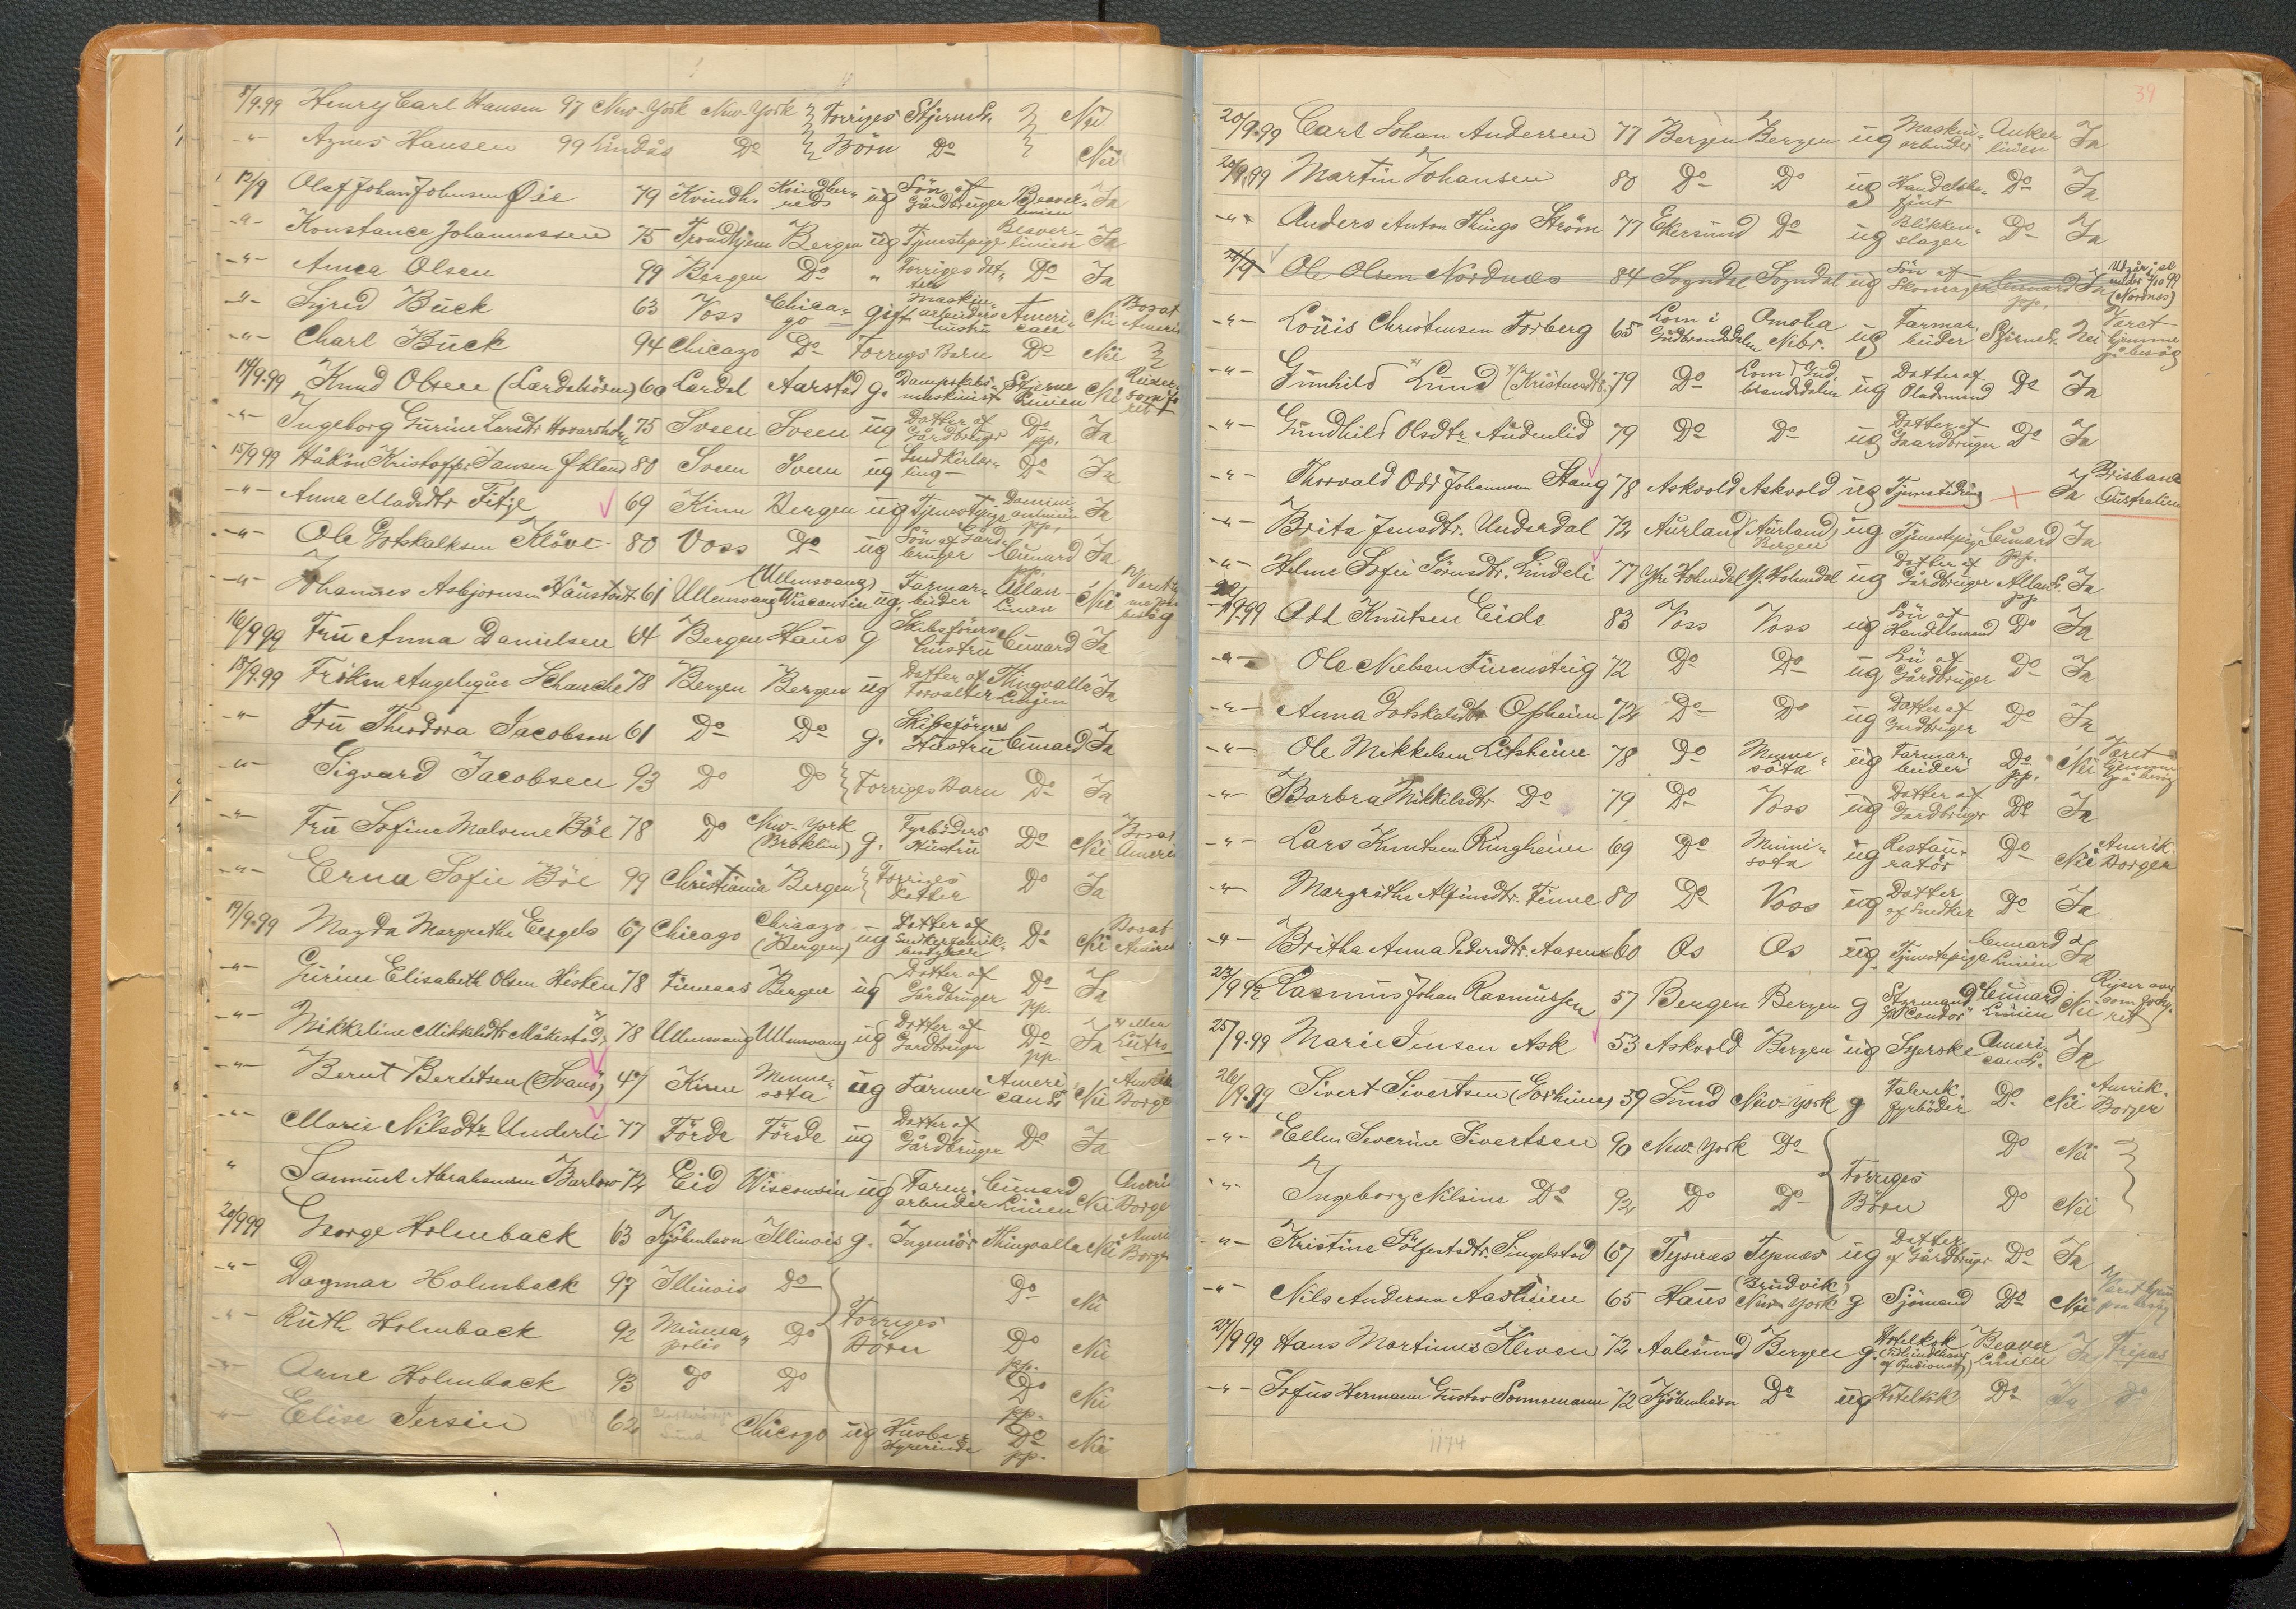 8/9.99 Henry Carl Hansen 97 New-York New-York Forriges Stjernel. Nei
-"- Agnes Hansen 99 Lindås Do Börn Do Nei
13/9 Olaf Johan Johnsen Øie 79 Kvindh. Kvindher- reds ug Sön af Gårdbruger Beaver- linien Ja
-"- Konstance Johannessen 75 Trondhjem Bergen ug Tjenestepige Beaver- linien Ja
-"- Anna Olsen 99 Bergen Do " Forriges dat- ter Do Ja
-"- Sigrid Buck 63 Voss Chica- go gift Maskin- arbeiders hustru Ameri- can Nei Bosat Amerik
-"- Charl Buck 94 Chicago Do Forriges Barn Do Nei
14/9.99 Knud Olsen (Lærdalsören) 60 Lærdal Aarstad g. Dampskibs- maskinist Stjerne Linien Nei Reiser som fo ret
-"- Ingeborg Gurine Larsdtr 75 Sveen Sveen ug Datter af Gårdbruger Do pp. Ja
15/9 99 Håkon Kristoffer Jansen Økland 80 Sveen Sveen ug Snedkerlær- ling Do Ja
-"- Anna Madsdtr Fitje 69 Kinn Bergen ug Tjenestepige Domini- onlinien pp. Ja
-"- Ole Gotskalksen Klöve 80 Voss Do ug Sön af Gård- bruger Cunard pp. Ja
-"- Johannes Asbjornsen 61 Ullensvang (Ullensvang) Wisconsin ug. Farmar- beider Allan- Linien Nei besög
16/9 99 Fru Anna Danielsen 64 Bergen Haus g Skibsförers hustru Cunard Ja
18/9.99 Fröken Angelique Schanche 78 Bergen Bergen ug Datter af Forvalter Thingvalla Linjen Ja
-"- Fru Theodora Jacobsen 61 Do Do g. Skibsförers Hustru Cunard Ja
-"- Sigvard Jacobsen 93 Do Do Forriges Barn Do Ja
-"- Fru Sofine Malvene Böe 78 Do New-York (Broklin) g. Fyrböders Hustru Do Nei Bosat Ameri
-"- Erna Sofie Böe 99 Christiania Bergen Forriges Datter Do Ja
19/9.99 Magda Margrethe Engels 67 Chicago Chicago (Bergen) ug Datter af Snedkerfabrik- Do Nei Bosat Amerik
-"- Gurine Elisabeth Olsen Hesken 78 Finnaas Bergen ug Datter af Gårdbruger Do pp. Ja
-"- Mikkeline Mikkelsdtr Måkestad 78 Ullensvang Ullensvang ug Datter af Gardbruger Do pp. Ja Lutro
-"- Bernt Berletsen (Svanö) 47 Kinn Minne- sota ug Farmer Ameri- canl. Nei Amerik Borger
-"- Marie Nilsdtr Underli 77 Förde Förde ug Datter af Gårdbruger Do Ja
" Samuel Abrahamsen 72 Eid Wisconsin ug Farm- arbeider Cunard Linien Nei Ameri Borge
20/9 99 George Holmback 63 Kjöbenhavn Illinois g. Ingeniör Thingvalla Nei Ameri Borger
-"- Dagmar Holmback 97 Illinois Do Do Nei
-"- Ruth Holmback 92 Minnea- polis " Do Forriges Börn Do pp. Nei
-"- Arne Holmback 93 Do Do Do pp. Nei
-"- Elise Jersin 62 Chicago ug Husbe- styrerinde Do pp. Nei
39
20/9.99 Carl Johan Andersen 77 Bergen Bergen ug Maskin- arbeider Anker linien Ja
20/9.99 Martin Johansen 80 Do Do ug Handelsbe- tjent Do Ja
-"- Anders Anton Thingo Ström 77 Ekersund Do ug Blikken- slager Do Ja
21/9 Ole Olsen Nordnæs 84 Sogndal Sogndal ug Sön af Skomager Cunard pp. Ja Udgår (Nordnæs)
-"- Louis Christensen Forberg 65 Lom i Gudbrandsdalen Omaha Nebr. ug Farmar- beider Stjernel. Nei Været hjemme på besög
-"- Gunhild Lund (Kristensdtr.) 79 Do Lom i Gud- brandsdalen ug Datter af Do Ja
-"- Gundhild Olsdtr Audenlid 79 Do Do ug Datter af Gaardbruger Do Ja
-"- Thorvald Odd Johannesen Stang 78 Askvold Askvold ug Tjenestedreng Ja Brisbane Australien
-"- Brita Jensdtr. Underdal 72 Aurland (Aurland) Bergen ug Tjenestepige Cunard pp. Ja
-"- Helene Sofie Görnsdtr. Lindeli 77 Ytre Holmdal Y. Holmdal ug Datter af Gårdbruger Allanl. pp Ja
22/9.99 Odd Knutsen Eide 83 Voss Voss ug Sön af Handelsmand Do Ja
-"- Ole Nielsen Finensteig 72 Do Do ug Sön af Gårdbruger Do Ja
-"- Anna Gotskalsdtr Opheim 74 Do Do ug Datter af Gardbruger Do Ja
-"- Ole Mikkelsen Litsheim 78 Do Minne- sota ug Farmar- beider Do pp. Nei Været hjemme på besög
-"- Barbra Mikkelsdtr Do 79 Do Voss ug Datter af Gardbruger Do Ja
-"- Lars Knutsen Ringheim 69 Do Minni- sota ug Restau- ratör Do Nei Amrik. Borger
-"- Margrethe Alfinsdtr. Finne 80 Do Voss ug Datter af Snedker Do Ja
-"- Britha Anna Pedersdtr. Aasen 60 Os Os ug. Tjenestepige Cunard Linien Ja
23/9 99 Rasmus Johan Rasmussen 57 Bergen Bergen g Styrmand "Condor" Cunard Linien Nei Rejser som ret
25/9.99 Marie Jensen Ask 53 Askvold Bergen ug Syerske Ameri- canl. Ja
26/9.99 Sivert Sivertsen (Forhines) 59 Sund New-York g Fabrik- fyrböder Do Nei Amrik. Borger
-"- Ellen Severine Sivertsen 90 New-York Do Do Nei
-"- Ingeborg Nilsine Do 92 Do Do Forriges Börn Do Nei
-"- Kristine Sölfestsdtr. Singelstad 67 Tysnæs Tysnæs ug Datter af Gårdbruger Do Ja
-"- Nils Andersen 65 Haus (Brudvik) New York g Sjömand Do Nei
27/9 99 Hans Martinus Kloven 72 Aalesund Bergen g. Hotelkok Beaver Linien Ja Fripas
-"- Sofus Hermann Gustav Sonnemann 72 Kjöbenhavn Do ug Hotelkok Do Ja do
1174